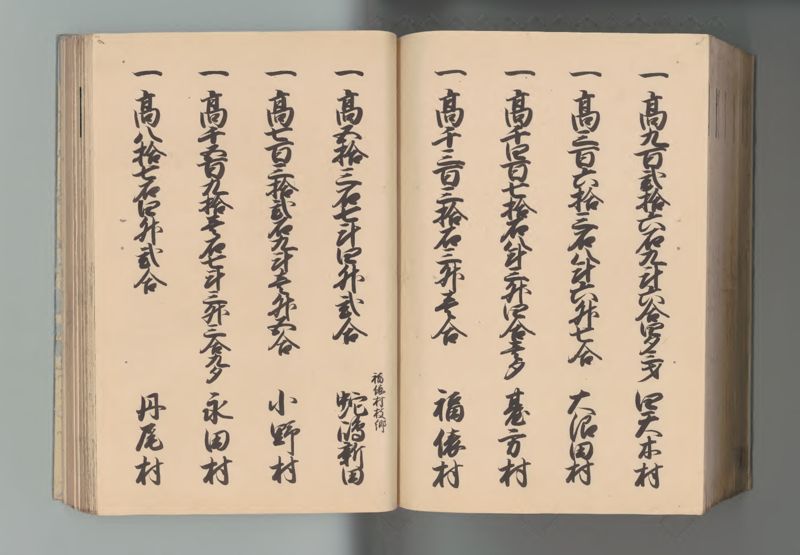 一 高九百弐拾六石九斗六合四夕三才 四天木村
一 高三百六拾三石八斗六升七合 大沼田村
一 高千四百七拾石八斗三升四合壱夕 台方村
一 高千三百三拾石三升壱合 福俵村
福俵村枝郷
一 高五拾三石七斗四升弐合 蛇嶋新田
一 高七百三拾弐石九斗壱升五合 小野村
一 高千五百九拾七石七斗三升三合九夕 永田村
一 高八拾七石四升弐合 丹尾村